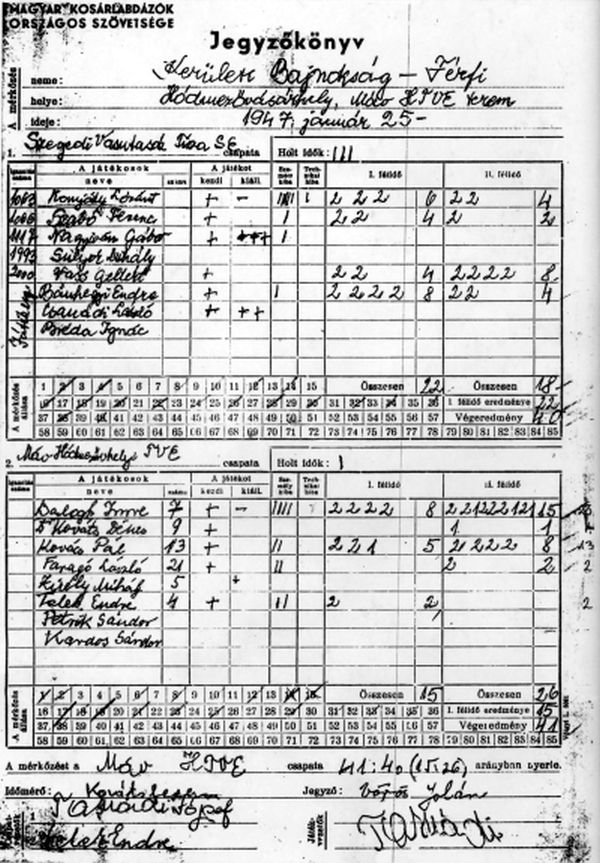 MAGYAR KOSÁRLABDÁZÓK
ORSZÁGOS SZÖVETSÉGE
Jegyzőkönyv
A mérkőzés
neme: Kerületi Bajnokság – Férfi
helye: Hódmezővásárhely, Máv HTVE terem
ideje: 1947. január 25-
1. Szegedi Vasutasok Tisza SE csapata Holt idők: III
A játékosok A játékot I. félidő II. félidő
neve száma kezdi kiáll.
1063 Konyóky Lóránt + - IIIII I 2 2 2 6 2 2 4
1066 Szabó Ferenc + I 2 2 4 2 2
1117 Nagyiván Gábor + +++ I
1993 Sulyok Mihály
2000 Vass Gellért + 2 2 4 2 2 2 2 8
Bánhegyi Endre + I 2 2 2 2 8 2 2 4
Csanádi László + ++
Préda Ignác
A mérkőzés állása
1 2 3 4 5 6 7 8 9 10 11 12 13 14 15 Összesen 22 Összesen 18-
16 17 18 19 20 21 22 23 24 25 26 27 28 29 30 31 32 33 34 35 36 I. félidő eredménye 22
37 38 39 40 41 42 43 44 45 46 47 48 49 50 51 52 53 54 55 56 57 Végeredmény 40
58 59 60 61 62 63 64 65 66 67 68 69 70 71 72 73 74 75 76 77 78 79 80 81 82 83 84 85
2. Máv Hódmezővhelyi TVE csapata Holt idők: I
A játékosok A játékot I. félidő II. félidő
neve száma kezdi kiáll.
Balogh Imre 7 + - IIII 2 2 2 2 8 2 2 1 2 2 2 1 2 1 15
Dr Kovács Dénes 9 + 1 1
Kovács Pál 13 + II 2 2 1 5 2 2 2 2 8 13
Faragó László 21 + II 2 2 2
Király Mihály 5 +
Telek Endre 4 + II 2 2 2
Petrik Sándor
Kardos Sándor
A mérkőzés állása
1 2 3 4 5 6 7 8 9 10 11 12 13 14 15 Összesen 15 Összesen 26
16 17 18 19 20 21 22 23 24 25 26 27 28 29 30 31 32 33 34 35 36 I. félidő eredménye 15
37 38 39 40 41 42 43 44 45 46 47 48 49 50 51 52 53 54 55 56 57 Végeredmény 41
58 59 60 61 62 63 64 65 66 67 68 69 70 71 72 73 74 75 76 77 78 79 80 81 82 83 84 85
A mérkőzést a Máv HTVE csapata 41:40 (15:26) arányban nyerte.
Időmérő: Jegyző: Vörös Jolán
József
Telek Endre